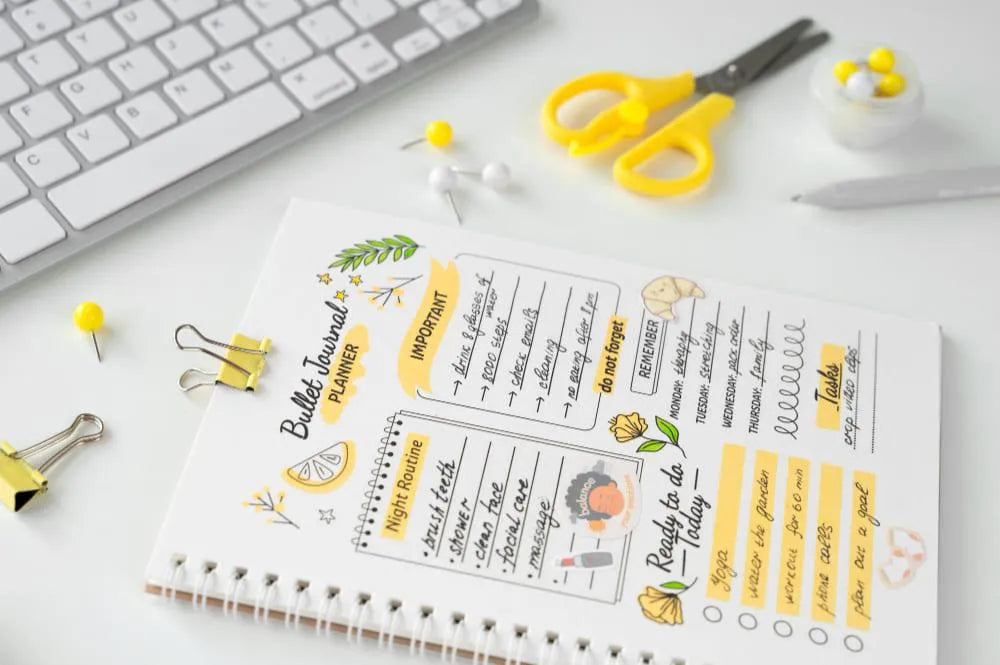 Bullet Journal
PLANNER
IMPORTANT
→ drink 8 glasses of
water
→ 8000 steps
→ check emails
→ cleaning
→ no eating after 8 pm
do not forget
REMEMBER
MONDAY: therapy
TUESDAY: stretching
WEDNESDAY: pack order
THURSDAY: family
Tasks
crop video caps
Night Routine
• brush teeth
• shower
• clean face
• facial care
• massage
balance
Ready to do
Today
Yoga
water the garden
workout for 60 min
phone calls
plan out a goal
T
Y
U
J
K
G
H
N
M
F
V
B
C